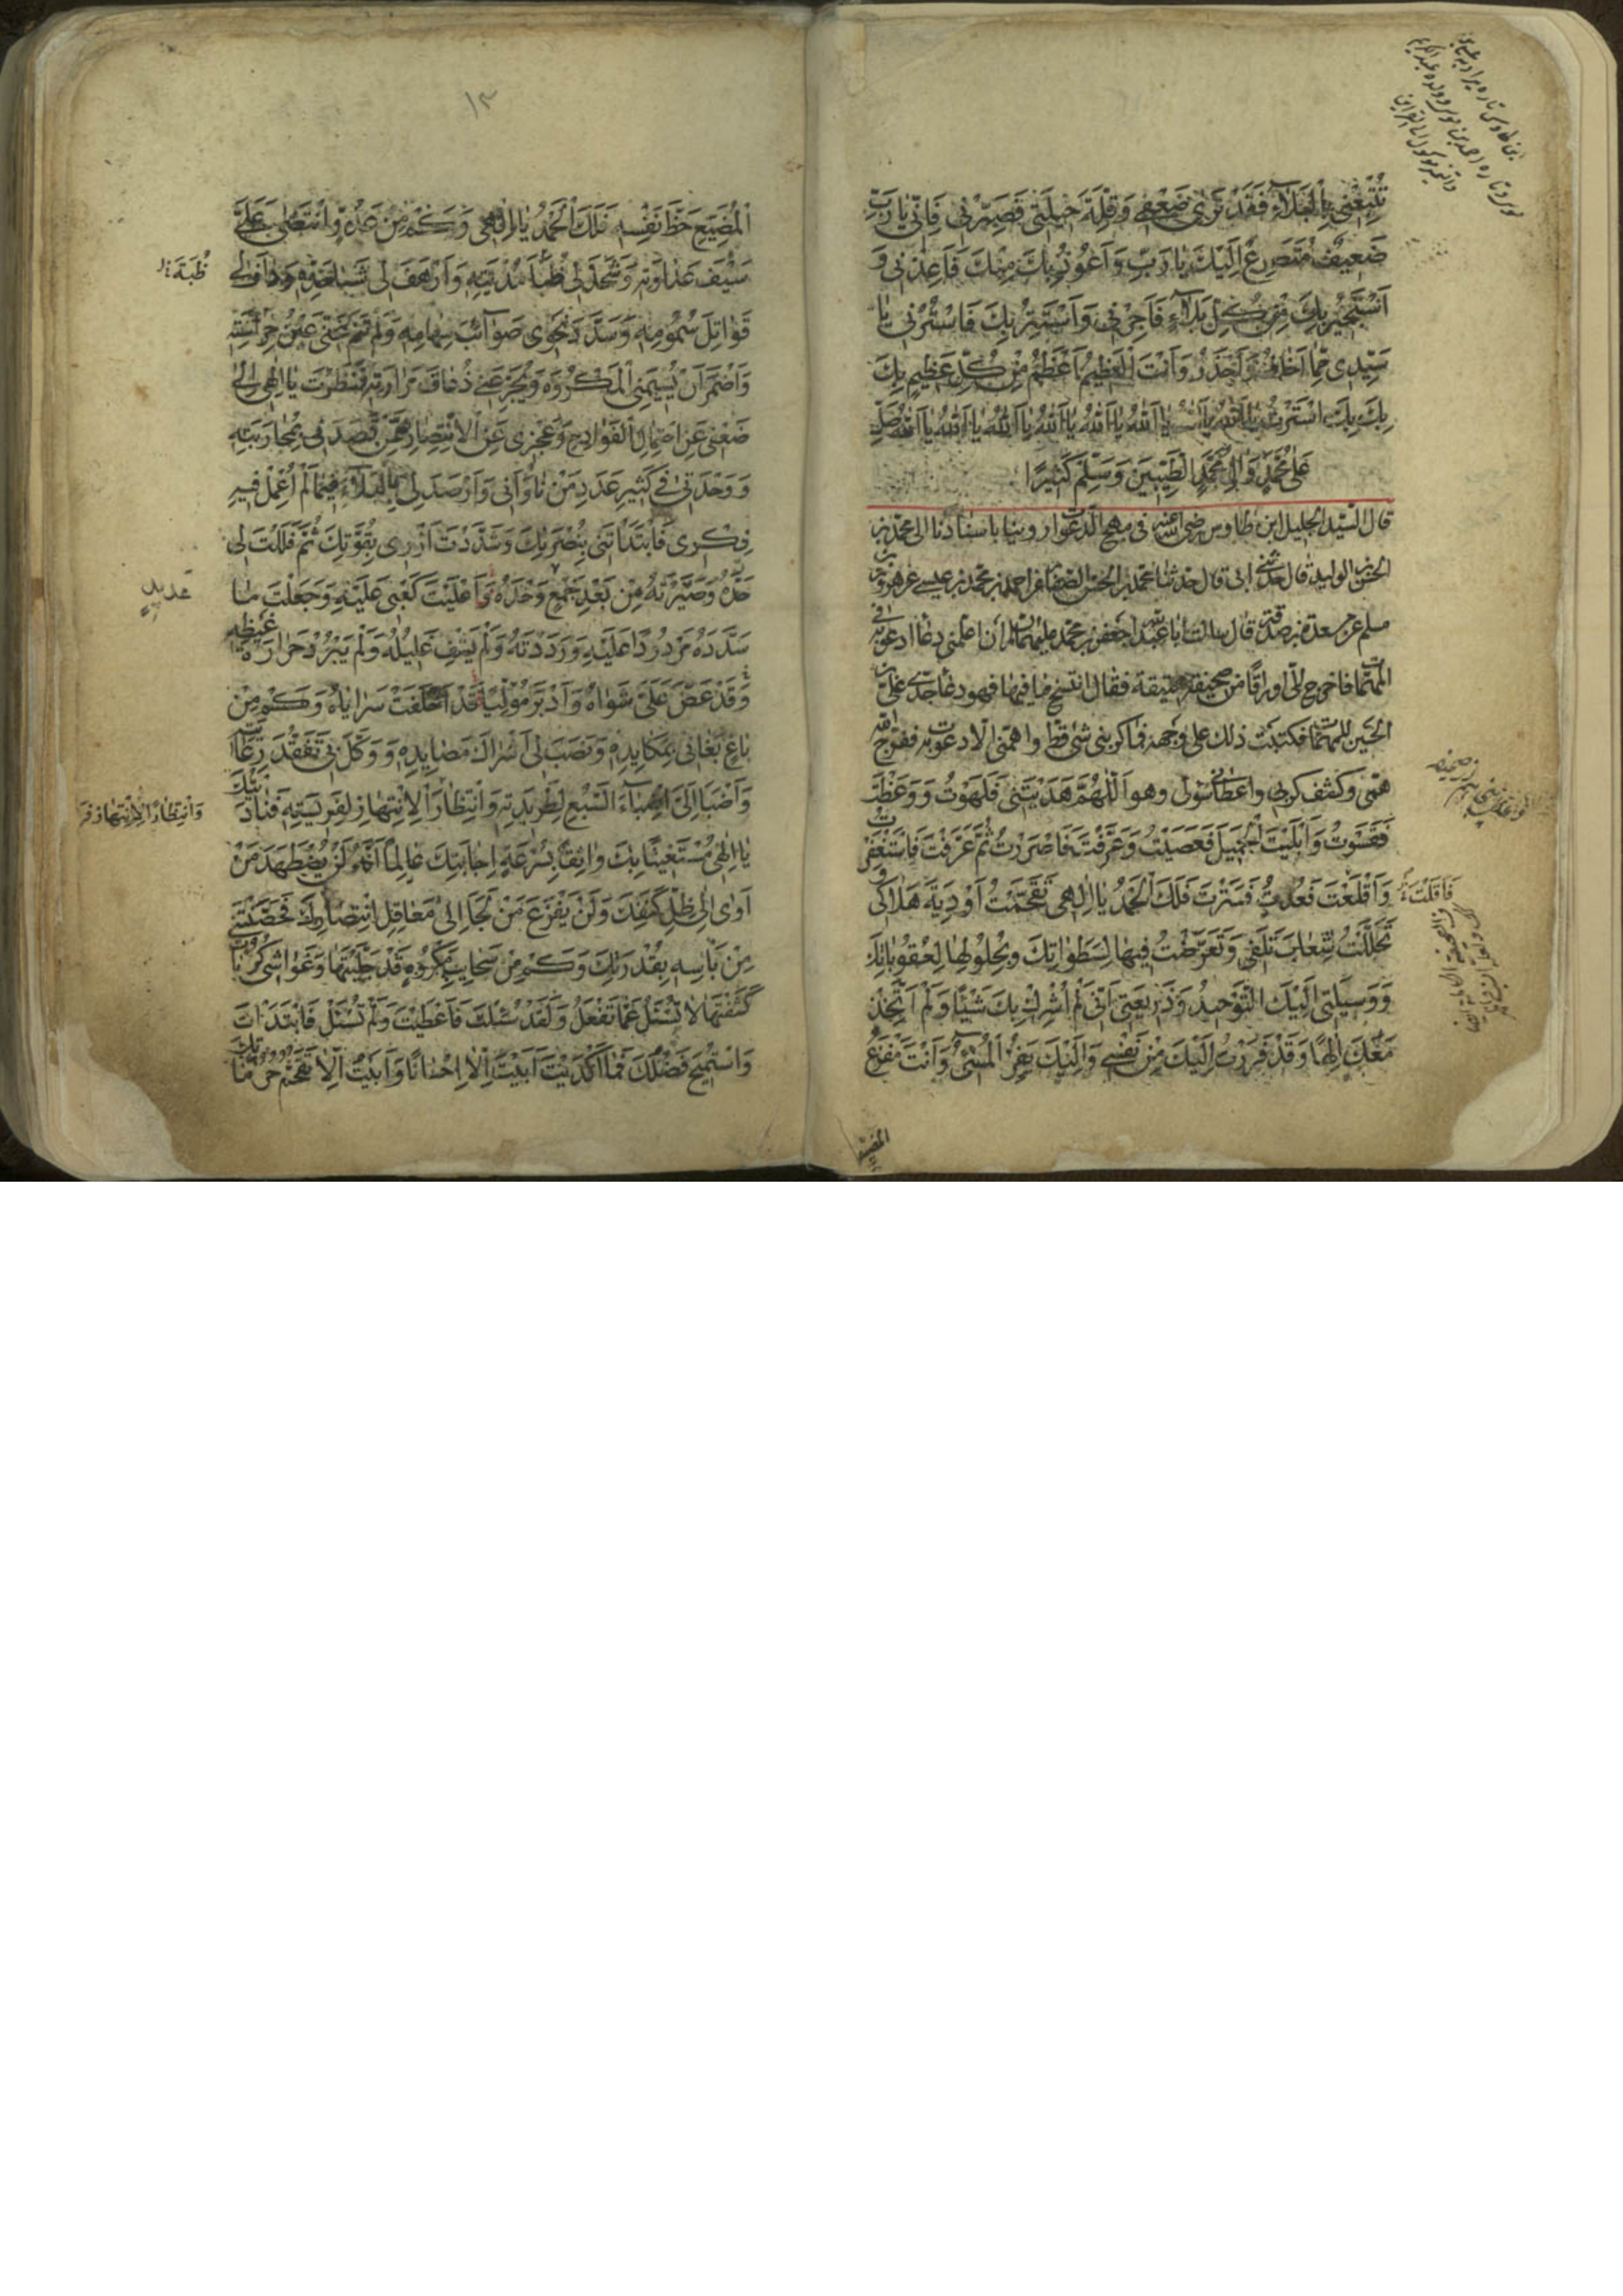 تُتْبِعْنِي بِالْبَلَاءِ فَقَدْ تَرٰى ضَعْفِي وَقِلَّةَ حِيلَتِي فَصَبِّرْنِي فَاِنِّي يَا رَبِّ
ضَعِيفٌ مُتَضَرِّعٌ اِلَيْكَ يَا رَبِّ وَاَعُوذُ بِكَ مِنْكَ فَاَعِذْنِي وَ
اَسْتَجِيرُ بِكَ مِنْ كُلِّ بَلَاءٍ فَاَجِرْنِي وَاَسْتَتِرُ بِكَ فَاسْتُرْنِي يَا
سَيِّدِي مِمَّا اَخَافُ وَاَحْذَرُ وَاَنْتَ الْعَظِيمُ اَعْظَمُ مِنْ كُلِّ عَظِيمٍ بِكَ
بِكَ بِكَ اسْتَتَرْتُ يَا اَللهُ يَا اَللهُ يَا اَللهُ يَا اَللهُ يَا اَللهُ يَا اَللهُ يَا اَللهُ صَلِّ
عَلٰى مُحَمَّدٍ وَاٰلِ مُحَمَّدٍ الطَّيِّبِينَ وَسَلِّمْ كَثِيرًا
قال السيد الجليل ابن طاوس رضي الله عنه في مهج الدعوات روينا باسنادنا الى محمد بن
الحسن بن الوليد قال حدثني ابي قال حدثنا محمد بن الحسن الصفار عن احمد بن محمد بن عيسى عن هرون بن
مسلم عن مسعدة بن صدقة قال سالت ابا عبد الله جعفر بن محمد عليهما السلام ان اعلمني دعاء ادعو به في
المهمات فاخرج الي اوراقا من صحيفة عتيقة فقال انتسخ ما فيها فهو دعاء جدي علي بن
الحسين للمهمات فكتبت ذلك على وجهه فما كربني شئ قط واهمني الا دعوت به ففرج الله
همي وكشف كربي واعطاني سولي وهو اَللّٰهُمَّ هَدَيْتَنِي فَلَهَوْتُ وَوَعَظْتَ
فَقَسَوْتُ وَاَبْلَيْتَ الْجَمِيلَ فَعَصَيْتُ وَعَرَّفْتَ فَاَصْرَرْتُ ثُمَّ عَرَفْتُ فَاسْتَغْفَرْتُ
فَاَقَلْتَ
وَاَقْلَعْتَ فَعُدْتُ فَسَتَرْتَ فَلَكَ الْحَمْدُ يَا اِلٰهِي تَقَحَّمْتُ اَوْدِيَةَ هَلَاكِي وَ
تَحَلَّلْتُ شِعَابَ تَلَفِي وَتَعَرَّضْتُ فِيهَا لِسَطَوَاتِكَ وَبِحُلُولِهَا لِعُقُوبَاتِكَ
وَوَسِيلَتِي اِلَيْكَ التَّوْحِيدُ وَذَرِيعَتِي اَنِّي لَمْ اُشْرِكْ بِكَ شَيْئًا وَلَمْ اَتَّخِذْ
مَعَكَ اِلٰهًا وَقَدْ فَرَرْتُ اِلَيْكَ مِنْ نَفْسِي وَاِلَيْكَ يَفِرُّ الْمُسِئُ وَاَنْتَ مَفْزَعُ
المضيع
١٣
الْمُضَيِّعِ حَظَّ نَفْسِهِ فَلَكَ الْحَمْدُ يَا اِلٰهِي وَكَمْ مِنْ عَدُوٍّ انْتَضٰى عَلَيَّ
سَيْفَ عَدَاوَتِهِ وَشَحَذَ لِي ظُبَا مُدْيَتِهِ وَاَرْهَفَ لِي شَبَا حَدِّهِ وَدَافَ لِي
ظُبَةَ
قَوَاتِلَ سُمُومِهِ وَسَدَّدَ نَحْوِي صَوَائِبَ سِهَامِهِ وَلَمْ تَنَمْ عَنِّي عَيْنُ حِرَاسَتِهِ
وَاَضْمَرَ اَنْ يَسُومَنِي الْمَكْرُوهَ وَيُجَرِّعَنِي ذُعَافَ مَرَارَتِهِ فَنَظَرْتَ يَا اِلٰهِي اِلٰى
ضَعْفِي عَنِ احْتِمَالِ الْفَوَادِحِ وَعَجْزِي عَنِ الْاِنْتِصَارِ مِمَّنْ قَصَدَنِي بِمُحَارَبَتِهِ
وَوَحْدَتِي فِي كَثِيرِ عَدَدِ مَنْ نَاوَانِي وَاَرْصَدَ لِي بِالْبَلَاءِ فِيمَا لَمْ اُعْمِلْ فِيهِ
فِكْرِي فَابْتَدَاْتَنِي بِنَصْرِكَ وَشَدَدْتَ اَزْرِي بِقُوَّتِكَ ثُمَّ فَلَلْتَ لِي
حَدَّهُ وَصَيَّرْتَهُ مِنْ بَعْدِ جَمْعٍ وَحْدَهُ وَاَعْلَيْتَ كَعْبِي عَلَيْهِ وَجَعَلْتَ مَا
عديد
سَدَّدَهُ مَرْدُودًا عَلَيْهِ وَرَدَدْتَهُ وَلَمْ يَشْفِ غَلِيلَهُ وَلَمْ يَبْرُدْ حَرَارَةُ غَيْظِهِ
وَقَدْ عَضَّ عَلَيَّ شَوَاهُ وَاَدْبَرَ مُوَلِّيًا قَدْ اَخْلَفَتْ سَرَايَاهُ وَكَمْ مِنْ
بَاغٍ بَغَانِي بِمَكَايِدِهِ وَنَصَبَ لِي اَشْرَاكَ مَصَايِدِهِ وَوَكَّلَ بِي تَفَقُّدَ رِعَايَتِهِ
وَاَضْبَاَ اِلَيَّ اِضْبَاءَ السَّبُعِ لِطَرِيدَتِهِ وَانْتِظَارَ الْاِنْتِهَازِ لِفَرِيسَتِهِ فَنَادَيْتُكَ
وَانْتِظَارًا لِانْتِهَازِ
يَا اِلٰهِي مُسْتَغِيثًا بِكَ وَاثِقًا بِسُرْعَةِ اِجَابَتِكَ عَالِمًا اَنَّهُ لَنْ يُضْطَهَدَ مَنْ
اَوٰى اِلٰى ظِلِّ كَنَفِكَ وَلَنْ يَفْزَعَ مَنْ لَجَاَ اِلٰى مَعَاقِلِ انْتِصَارِكَ فَحَصَّنْتَنِي
مِنْ بَاْسِهِ بِقُدْرَتِكَ وَكَمْ مِنْ سَحَايِبِ مَكْرُوهٍ قَدْ جَلَّيْتَهَا وَغَوَاشِي كُرُبَاتٍ
كَشَفْتَهَا لَا تُسْئَلُ عَمَّا تَفْعَلُ وَلَقَدْ سُئِلْتَ فَاَعْطَيْتَ وَلَمْ تُسْئَلْ فَابْتَدَاْتَ
وَاسْتُمِيحَ فَضْلُكَ فَمَا اَكْدَيْتَ اَبَيْتَ اِلَّا اِحْسَانًا وَاَبَيْتُ اِلَّا تَقَحُّمَ حُرُمَاتِكَ